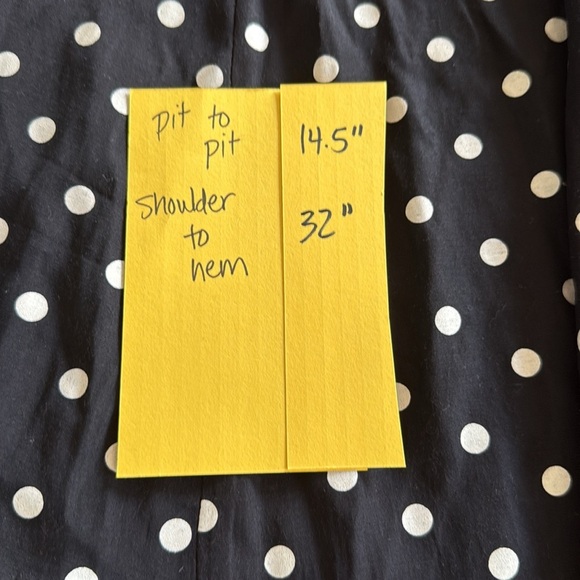 pit to
pit 14.5"
shoulder
to 32"
hem